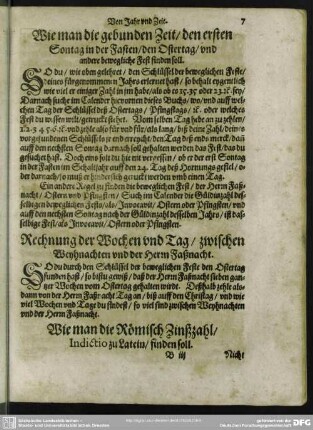 Von Jahr vnd Zeit. 7
Wie man die gebunden Zeit / den ersten
Sontag in der Fasten / den Ostertag / vnd
andere bewegliche Fest finden soll.
SO du / wie oben gelehret / den Schlüssel der beweglichen Feste /
deines fürgenommenen Jahrs erlernet hast / so behalt eygentlich
wie viel er einiger Zahl in jm habe / als ob es 25. 35 oder 23. rc. sey /
Darnach suche im Calender hievornen dieses Buchs / wo / vnd auff wel-
chen Tag der Schlüssel deß Ostertags / Pfingstags / rc. oder welches
Fest du wissen wilt / getruckt stehet. Von selben Tag hebe an zu zehlen /
1. 2. 3. 4. 5. 6. rc. vnd zehle also für vnd für / als lang / biß deine Zahl / dein
gefundenen Schlüssels so je end erreycht / den Tag deß ends merck / dañ
auff den nehsten Sontag darnach soll gehalten werden das Fest / das du
gesuchet hast. Doch eins solt du hie nit vergessen / ob er der erst Sontag
in der Fasten im Schaltjahr auff den 24. Tag deß Hornungs gefiel / o-
der darnach / so muß er hindersich geruckt werden vmb einen Tag.
Ein andere Regel zu finden die beweglichen Fest / der Herrn Faß-
nacht / Ostern vnd Pfingsten / Such im Calender die Güldinzahl des-
selbigen beweglichen Fests / als / Invocavit / Ostern oder Pfingsten / vnd
auff den nehsten Sontag nach der Güldinzahl desselben Jahrs / ist das-
selbige Fest / als Invocavit / Ostern oder Pfingsten.
Rechnung der Wochen vnd Tag / zwischen
Weyhnachten vnd der Herrn Faßnacht.
SO du durch den Schlüssel der bewegliche Feste den Ostertag
funden hast / so bistu gewiß / daß der Herrn Faßnacht sieben gan-
tzer Wochen vom Ostertag gehalten wirdt. Deßhalb zehle als-
dann von der Herrn Faßnacht Tag an / biß auff den Christag / vnd wie
viel Wochen vnd Tage du findest / so viel sind zwischen Weyhnachten
vnd der Herrn Faßnacht.
Wie man die Römisch Zinßzahl /
Indictio zu Latein / finden soll.
B iij Nicht